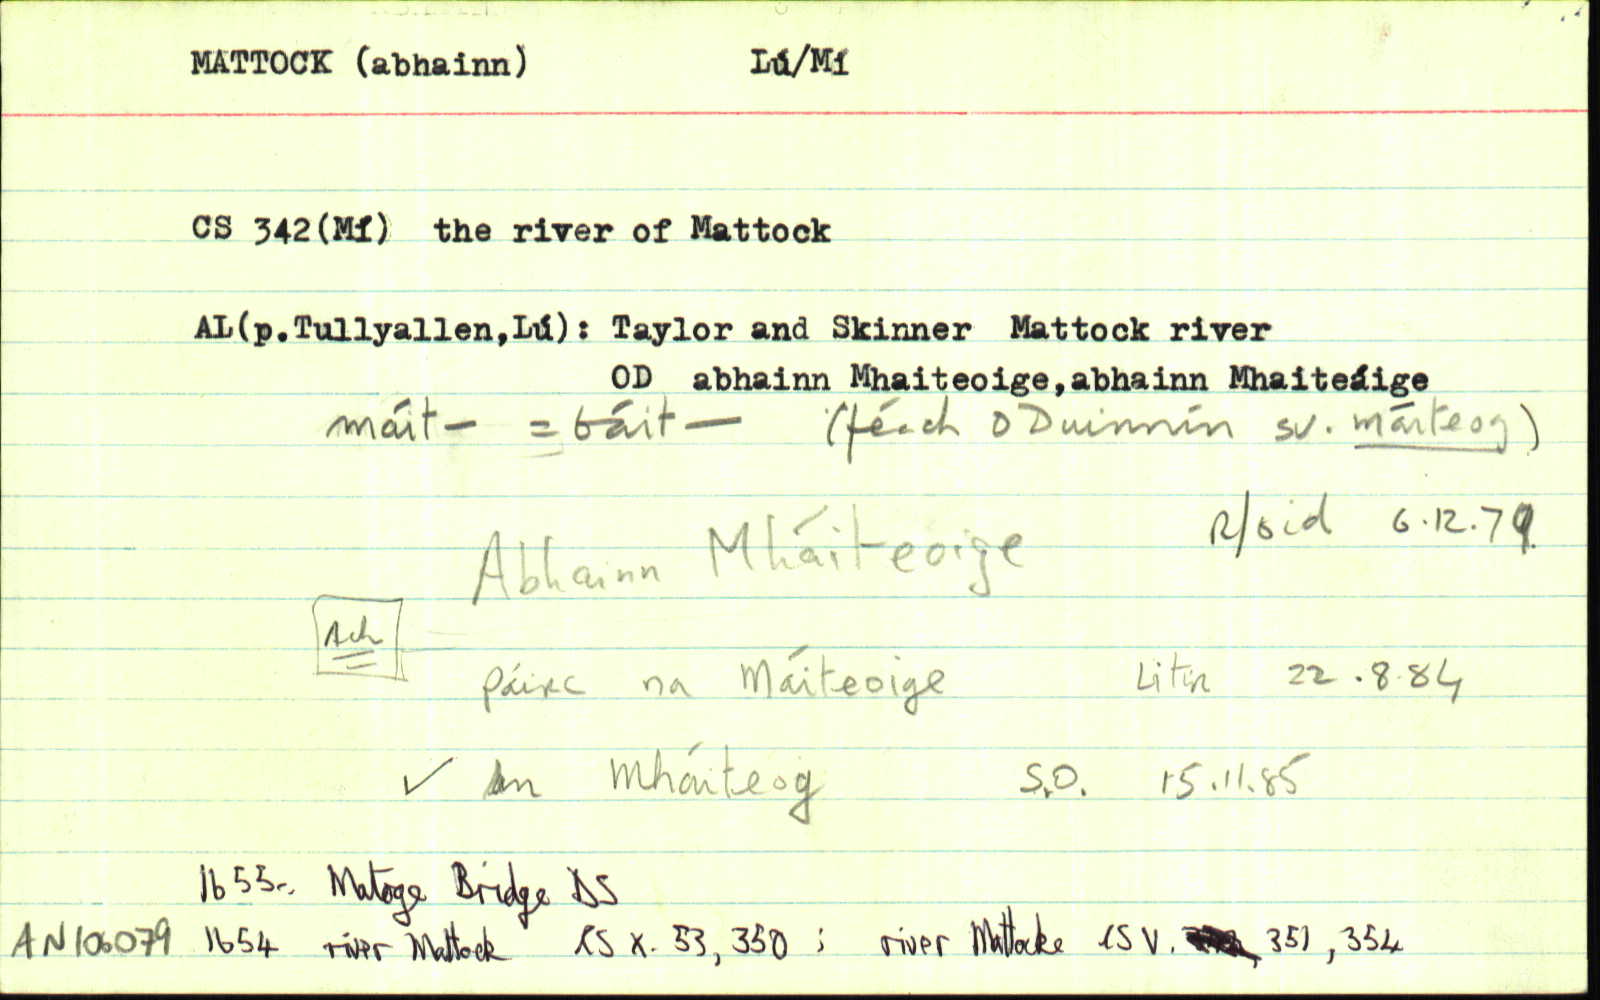 MATTOCK (abhainn) Lú/Mí
CS 342(Mí) the river of Mattock
AL(p.Tullyallen,Lú): Taylor and Skinner Mattock river
OD abhainn Mhaiteoige, abhainn Mhaiteáige
máit- = báit- (féach Ó Duinnín sv. máiteog)
6.12.79
Abhainn Mháiteoige
páirc na Máiteoige Litir 22.8.84
✓ An Mháiteog S.O. 15.11.85
1655- Matoge Bridge DS
AN106079 1654 river Mattock CS X. 53, 350 ; river Mattocke CS V. 351, 354